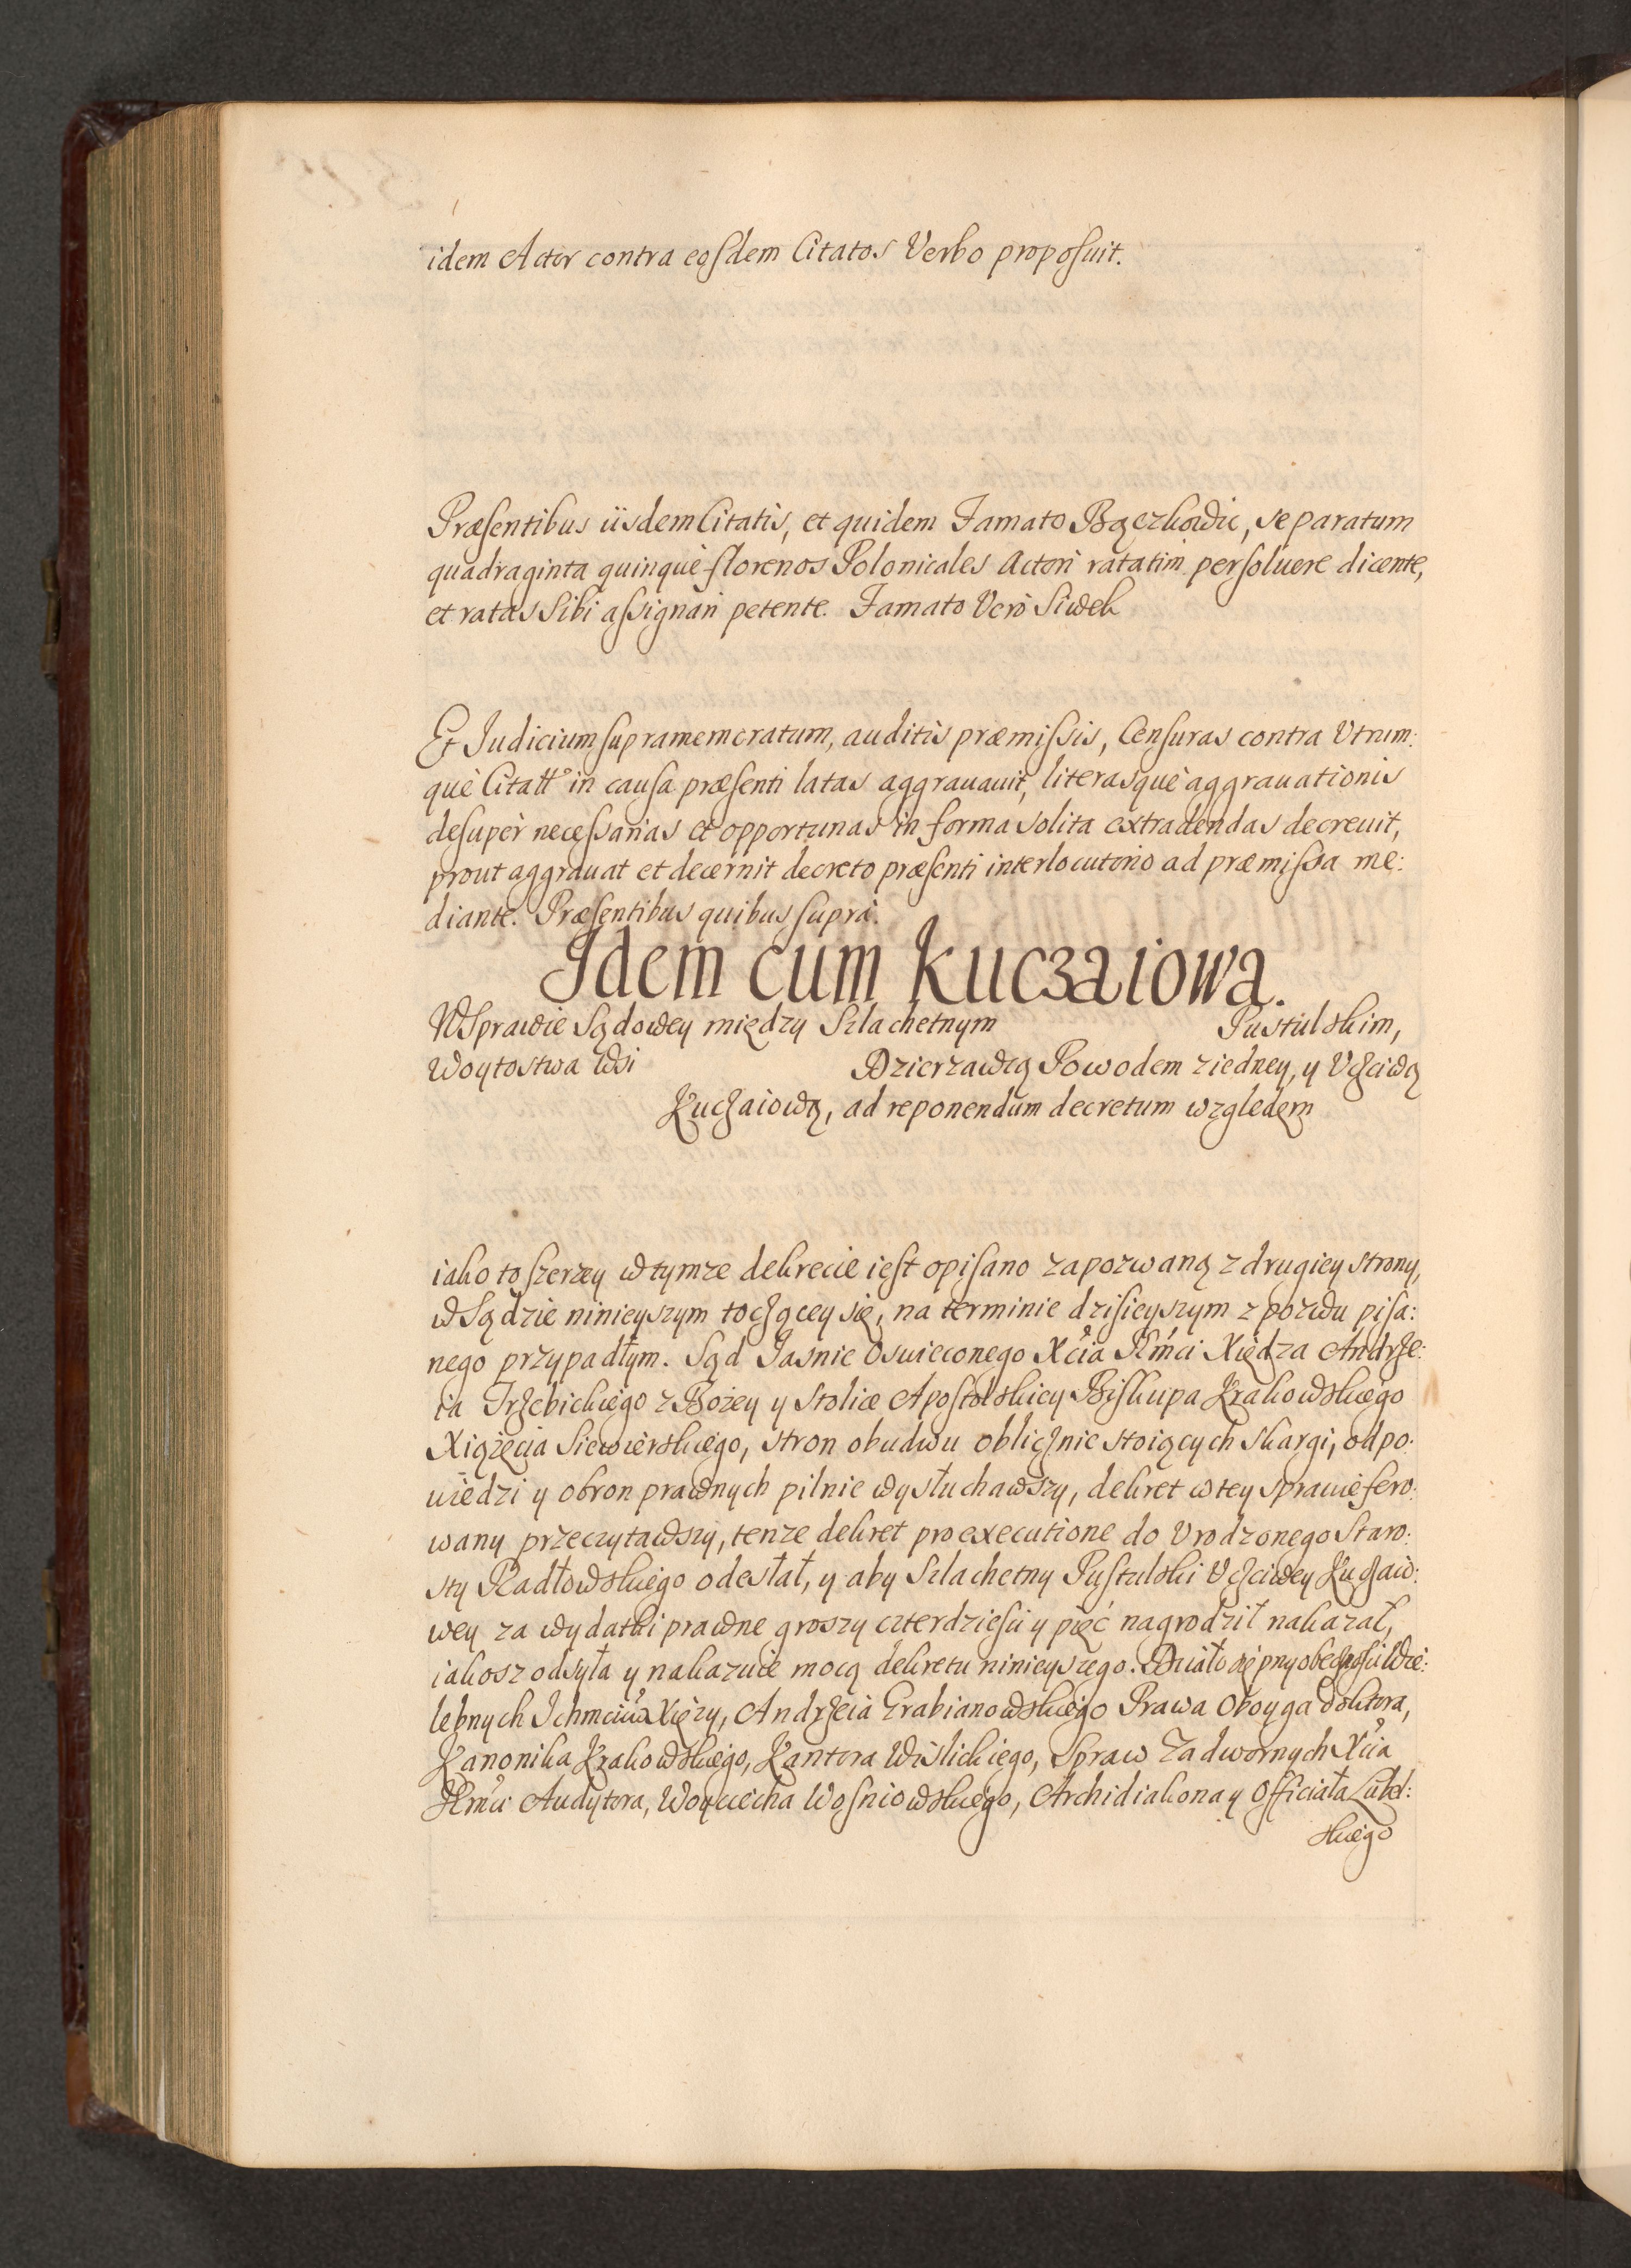 idem Actor contra eosdem Citatos Verbo proposuit.
Præsentibus iisdem Citatis, et quidem Famato Bączkowic, se paratum
quadraginta quinquè florenos Polonicales Actori ratatim persoluere dicente,
et ratas sibi assignari petente. Famato Verò Siwek
Et Judicium supramemoratum, auditis præmissis, Censuras contra Utrum:
què Citatt° in causa præsenti latas aggrauauit, literasquè aggrauationis
desupèr necessarias et opportunas in forma solita extradendas decreuit,
prout aggrauat et decernit decreto præsenti interlocutorio ad præmissa me:
diante. Præsentibus quibus suprà.
Idem cum Kuczaiowa.
W Sprawie Sądowey między Szlachetnym Pustulskim,
Woytostwa Wsi Dzierzawcą Powodem z iedney, y Uczciwą
Kuczaiową, ad reponendum decretum względem
iako to szerzey w tymze dekrecie iest opisano zapozwaną z drugiey strony,
w Sądzie ninieyszym toczącey się, na terminie dzisieyszym z pozwu pisa:
nego przypadłym. Sąd Jasnie Oswieconego Xcia Jmci Xiędza Andrze:
ia Trzebickiego z Bożey y Stolice Apostolskiey Biskupa Krakowskiego
Xiążęcia Siewierskiego, stron obudwu oblicznie stoiących skargi, odpo:
wiedzi y obron prawnych pilnie wysłuchawszy, dekret w tey sprawie fero:
wany przeczytawszy, tenze dekret pro executione do Vrodzonego Staro:
sty Radłowskiego odesłał, y aby Szlachetny Pustulski Uczciwey Kuczaio:
wey za wydatki prawne groszy czterdziesci y pięć nagrodził nakazał,
iakosz odsyła y nakazuie mocą dekretu ninieyszego. Działo się przy obecnosci Wie:
lebnych Ichmciów Xięzy, Andrzeia Grabianowskiego Prawa Oboyga doktora,
Kanonika Krakowskiego, Kantora Wislickiego, Spraw Zadwornych Xcia
Jmci Audytora, Woyciecha Wosniowskiego, Archidiakona y Officiała Lubel:
skiego